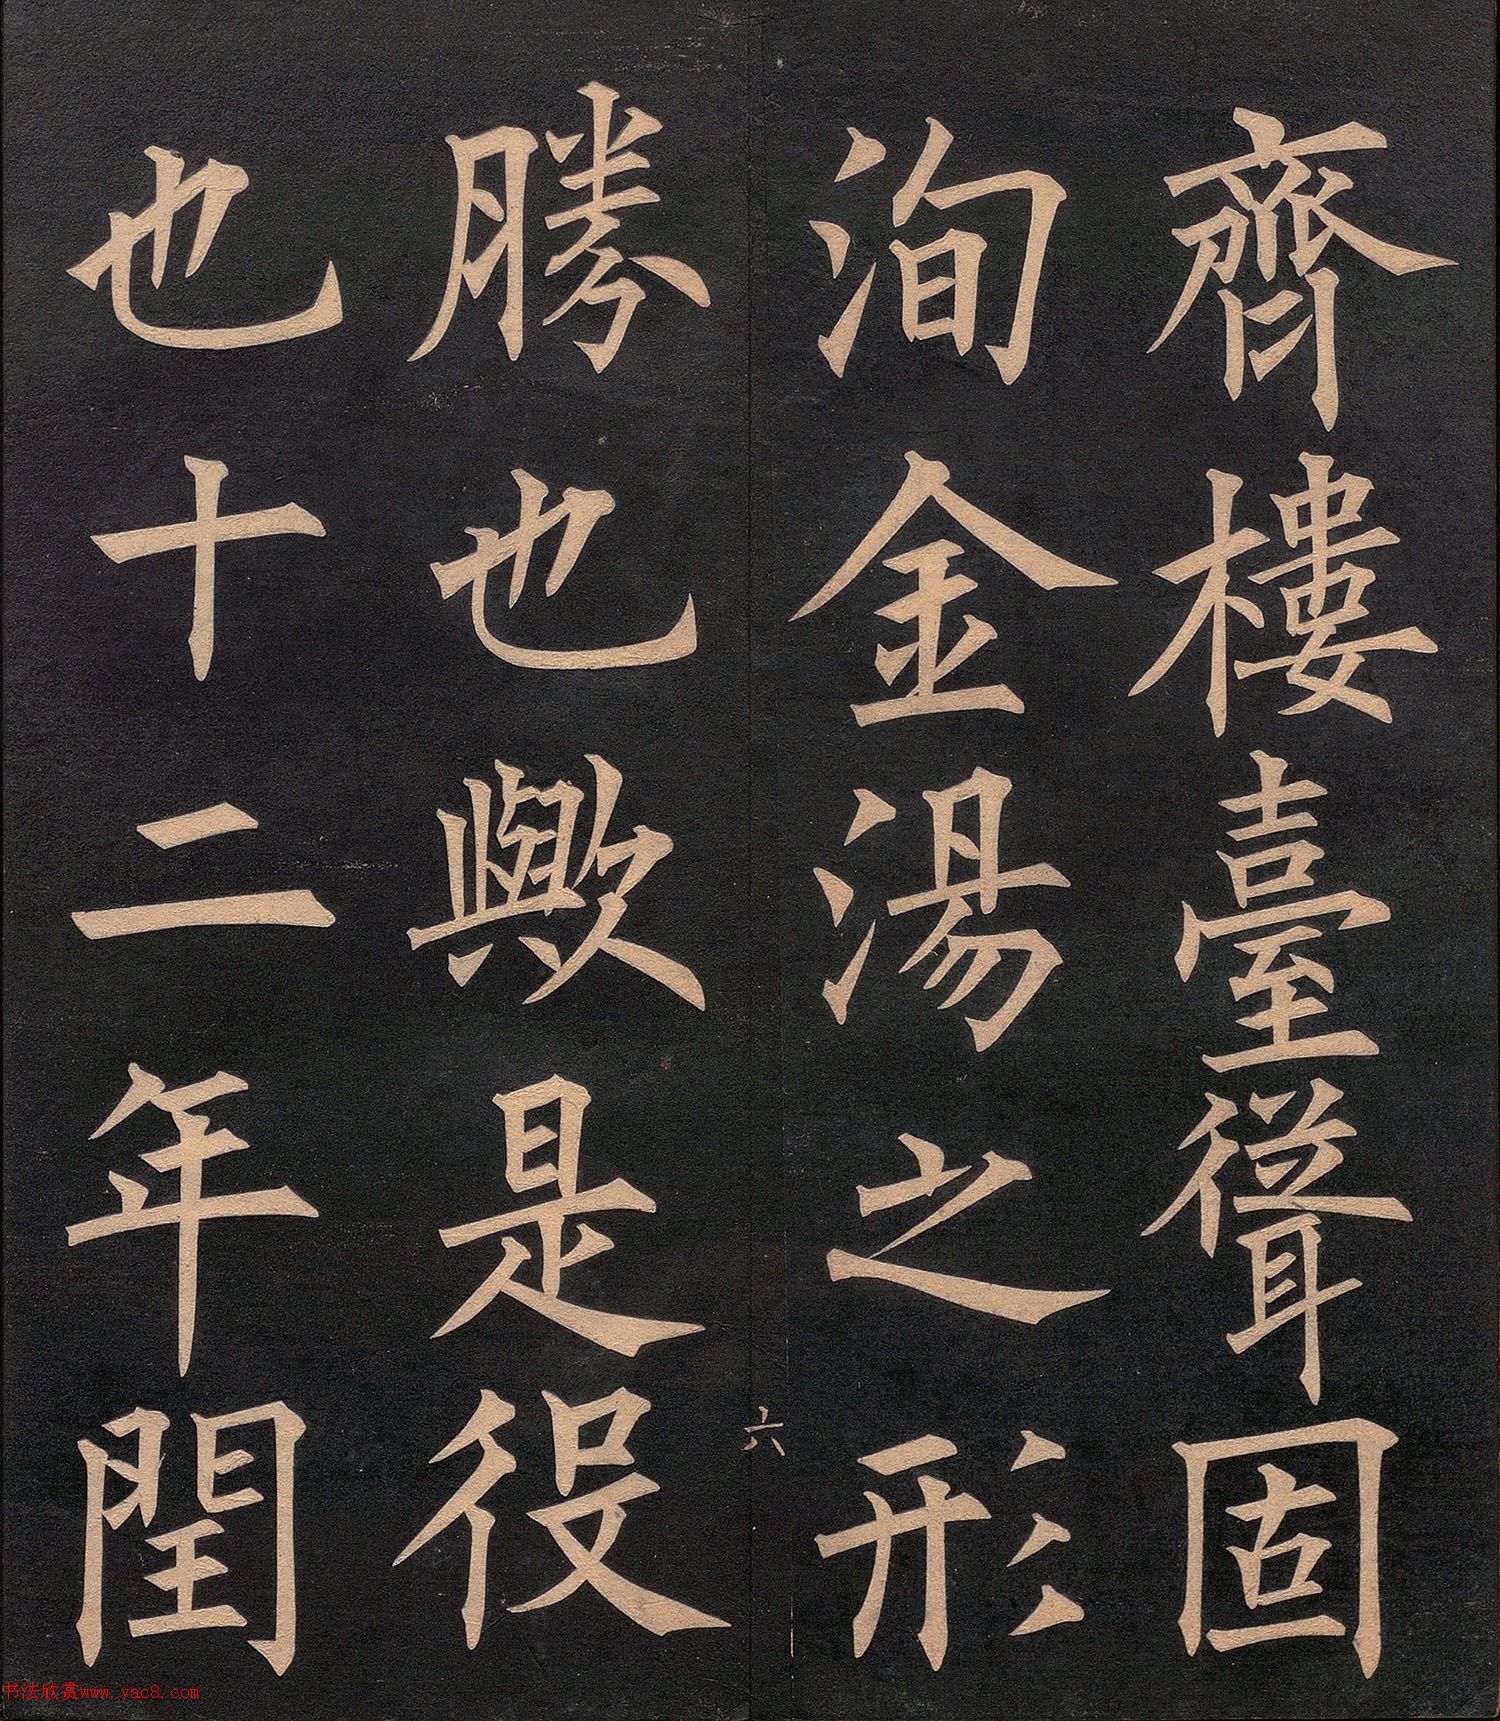 齊樓臺聳固
洵金湯之形
六
勝也歟是役
也十二年閏
书法欣赏www.yac8.com